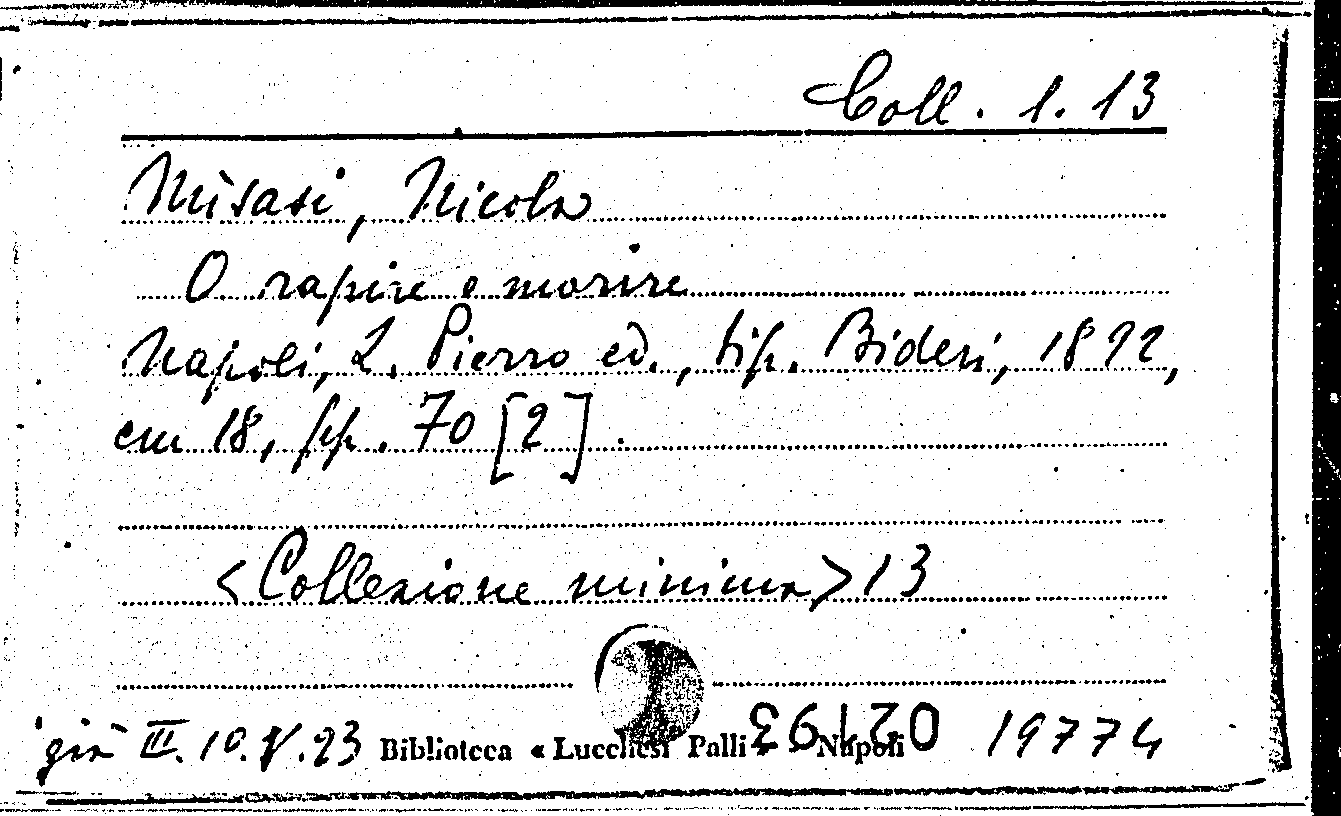 Coll. 1.13
Misasi, Nicola
O rapire o morire
Napoli, L. Pierro ed., tip. Bideri, 1892,
cm 18, pp. 70 [2].
<Collezione minima> 13
già III.10.V.23 Biblioteca « Lucchesi Palli » Napoli 02193 19774